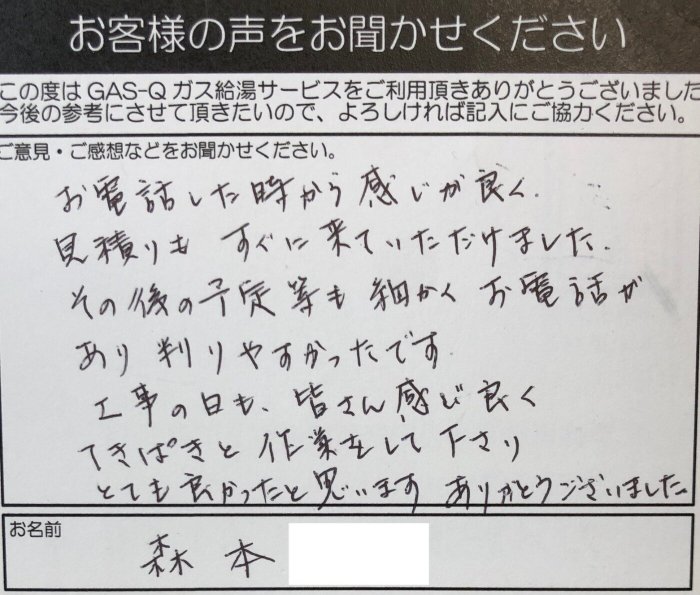 お客様の声をお聞かせください
この度は GAS-Q ガス給湯サービスをご利用頂きありがとうございました
今後の参考にさせて頂きたいので、よろしければ記入にご協力ください。
ご意見・ご感想などをお聞かせください。
お電話した時から感じが良く、
見積りも すぐに来ていただけました。
その後の予定等も細かくお電話が
あり判りやすかったです
工事の日も、皆さん感じ良く
てきぱきと作業をして下さり
とても良かったと思います ありがとうございました。
お名前
森本